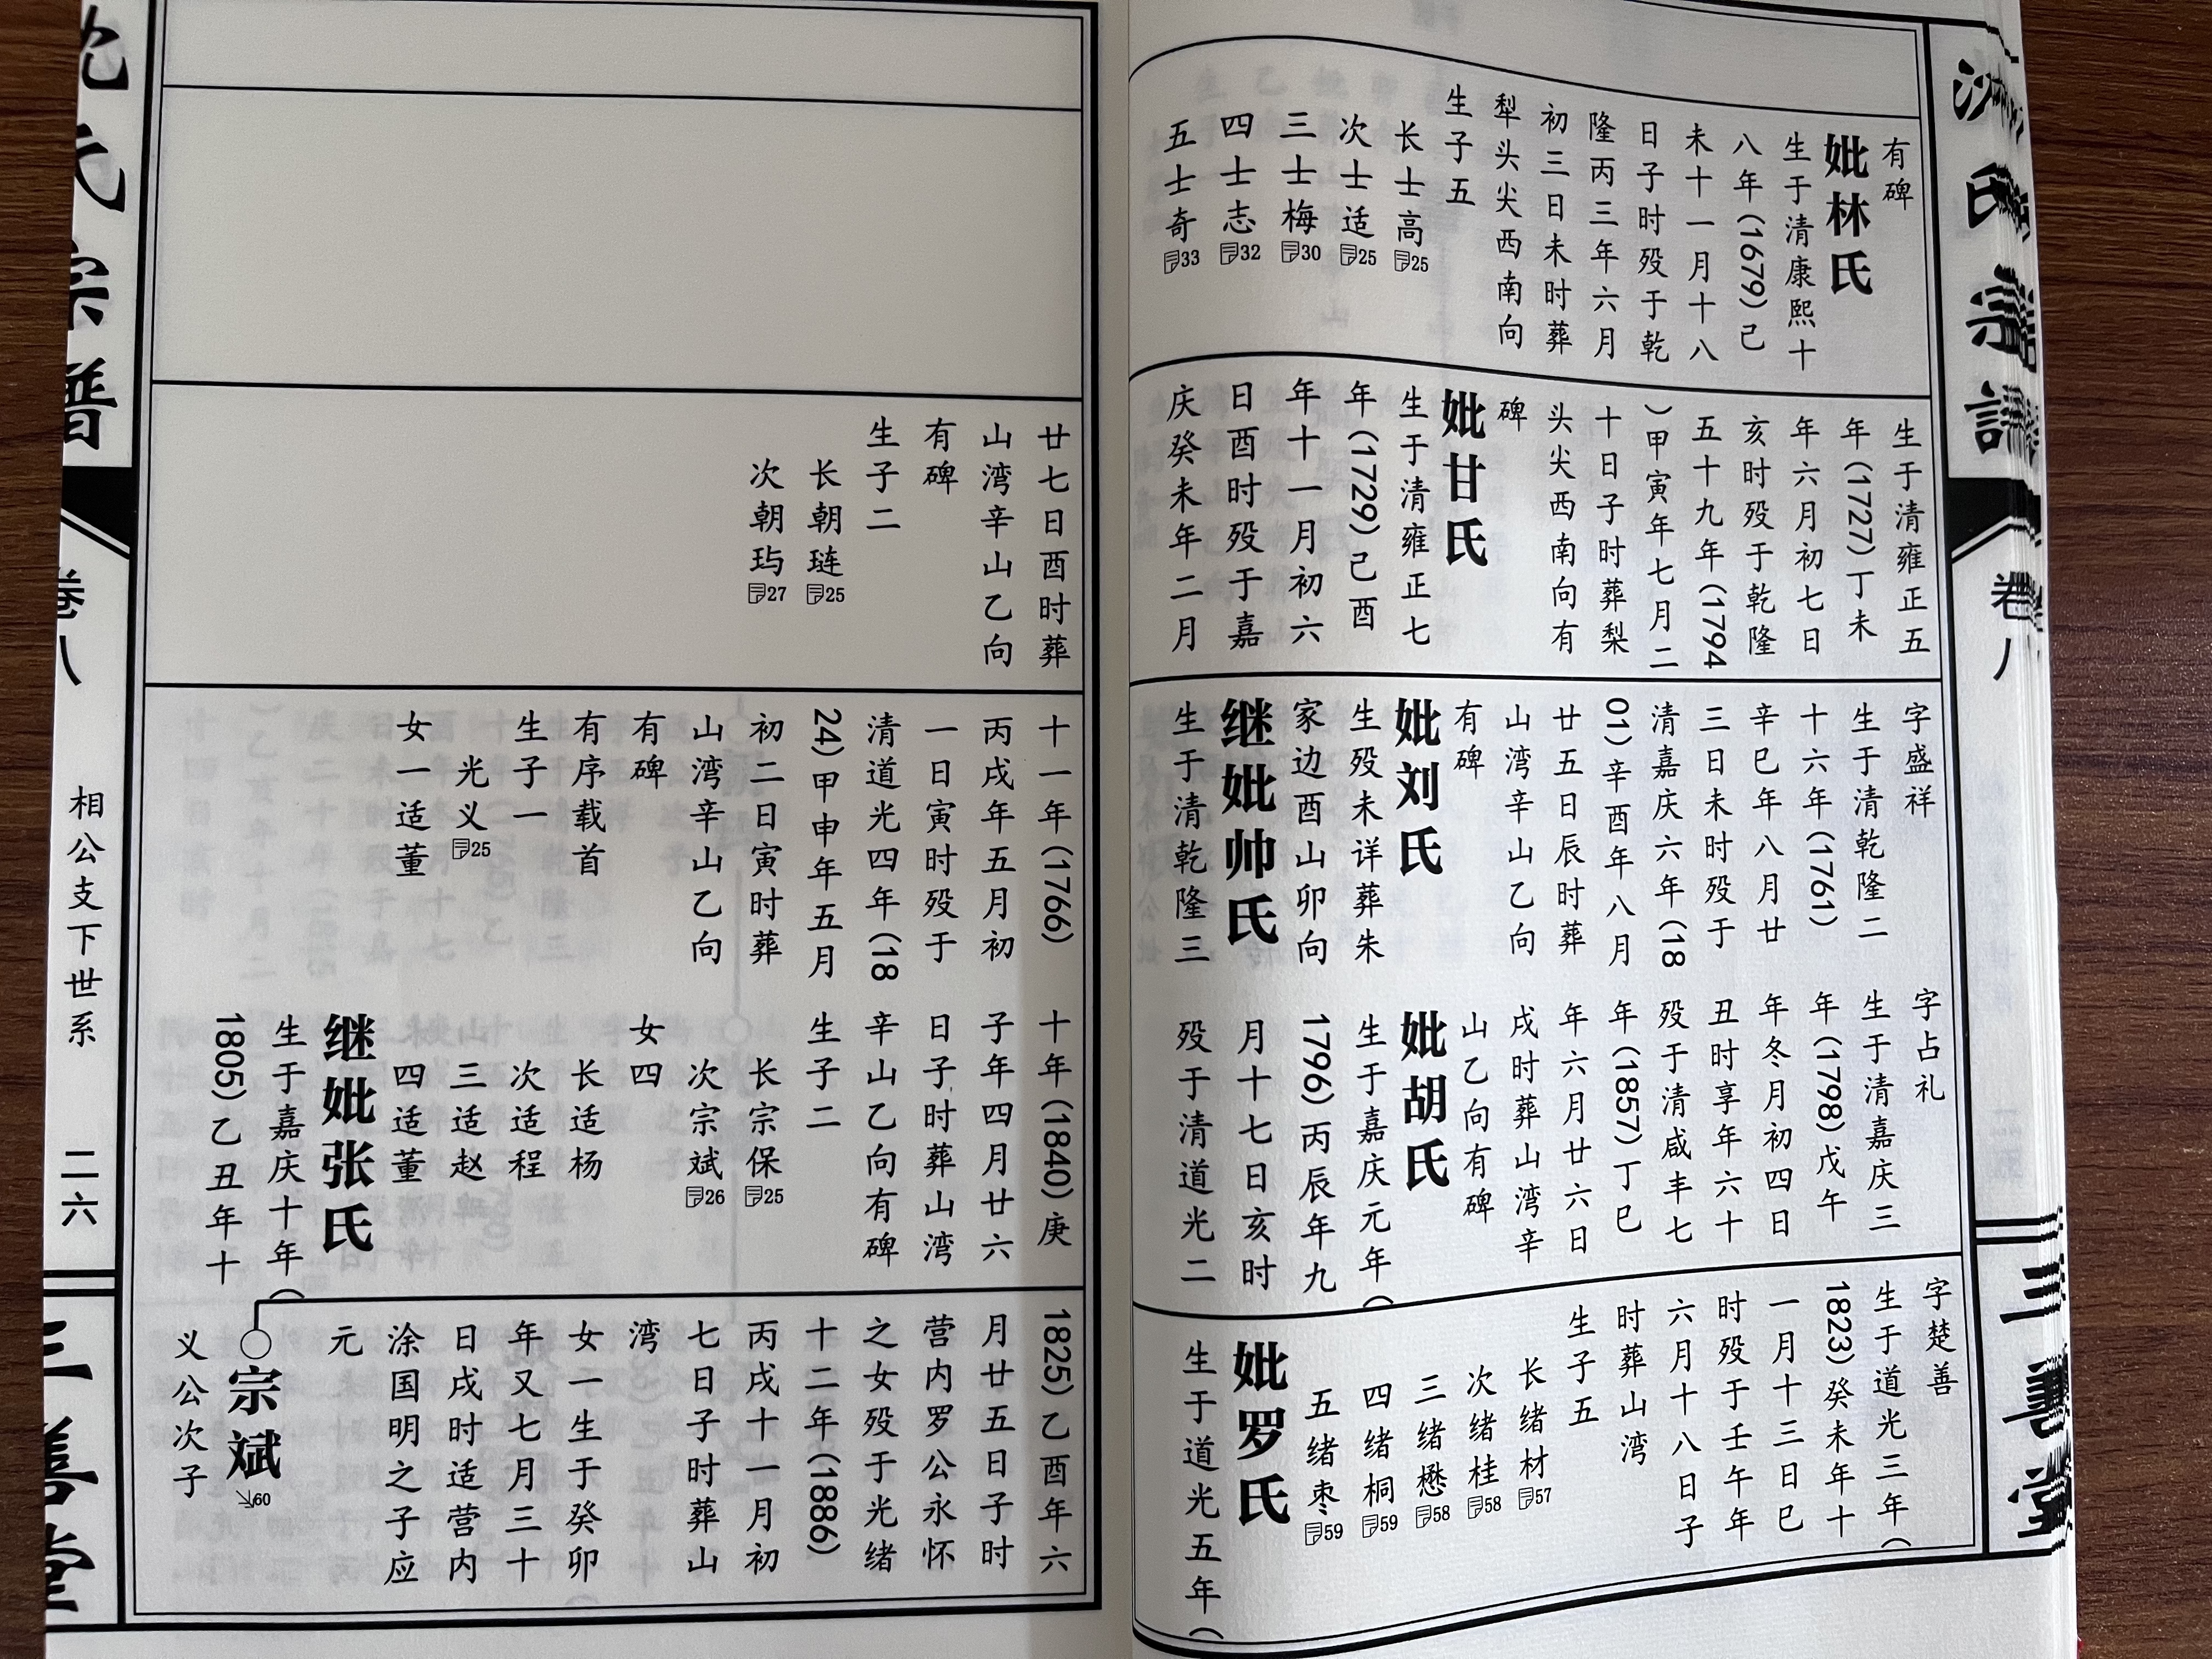 氏宗譜
卷八
三善堂
有碑
妣林氏
生于清康熙十
八年(1679)己
未十一月十八
日子时殁于乾
隆丙三年六月
初三日未时葬
犁头尖西南向
生子五
长士高25
次士适25
三士梅30
四士志32
五士奇33
生于清雍正五
年(1727)丁未
年六月初七日
亥时殁于乾隆
五十九年(1794
)甲寅年七月二
十日子时葬梨
头尖西南向有
碑
妣甘氏
生于清雍正七
年(1729)己酉
年十一月初六
日酉时殁于嘉
庆癸未年二月
字盛祥
生于清乾隆二
十六年(1761)
辛巳年八月廿
三日未时殁于
清嘉庆六年(18
01)辛酉年八月
廿五日辰时葬
山湾辛山乙向
有碑
妣刘氏
生殁未详葬朱
家边酉山卯向
继妣帅氏
生于清乾隆三
字占礼
生于清嘉庆三
年(1798)戊午
年冬月初四日
丑时享年六十
殁于清咸丰七
年(1857)丁巳
年六月廿六日
戌时葬山湾辛
山乙向有碑
妣胡氏
生于嘉庆元年(
1796)丙辰年九
月十七日亥时
殁于清道光二
字楚善
生于道光三年(
1823)癸未年十
一月十三日巳
时殁于壬午年
六月十八日子
时葬山湾
生子五
长绪材57
次绪桂58
三绪懋58
四绪桐59
五绪枣59
妣罗氏
生于道光五年(
廿七日酉时葬
山湾辛山乙向
有碑
生子二
长朝琏25
次朝玙27
十一年(1766)
丙戌年五月初
一日寅时殁于
清道光四年(18
24)甲申年五月
初二日寅时葬
山湾辛山乙向
有碑
有序载首
生子一
光义25
女一适董
十年(1840)庚
子年四月廿六
日子时葬山湾
辛山乙向有碑
生子二
长宗保25
次宗斌26
女四
长适杨
次适程
三适赵
四适董
继妣张氏
生于嘉庆十年(
1805)乙丑年十
1825)乙酉年六
月廿五日子时
营内罗公永怀
之女殁于光绪
十二年(1886)
丙戌十一月初
七日子时葬山
湾
女一生于癸卯
年又七月三十
日戌时适营内
涂国明之子应
元
宗斌60
义公次子
氏宗谱
卷八
相公支下世系
二六
三善堂